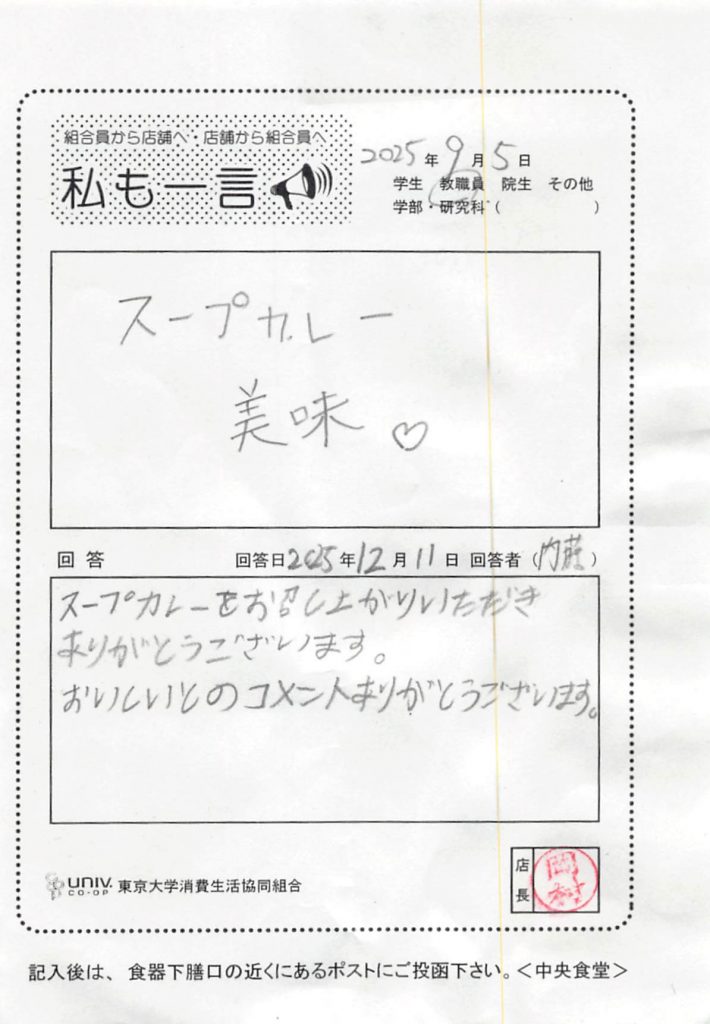 組合員から店舗へ・店舗から組合員へ
私も一言
2025年9月5日
学生 教職員 院生 その他
学部・研究科(　　　)
スープカレー
美味♡
回答 回答日2025年12月11日 回答者(内藤)
スープカレーをお召し上がりいただき
ありがとうございます。
おいしいとのコメントありがとうございます。
UNIV. CO-OP 東京大学消費生活協同組合
店長 岡村
記入後は、食器下膳口の近くにあるポストにご投函下さい。＜中央食堂＞